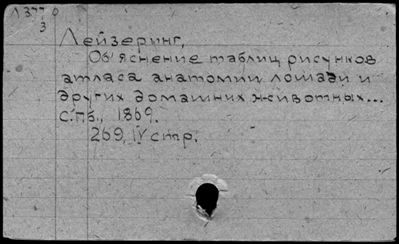 Л 377
3
Лейзеринг,
Об'яснение таблиц рисунков
атласа анатомии лошади и
других домашних животных...
С.п.б., 1869.
269, IV стр.